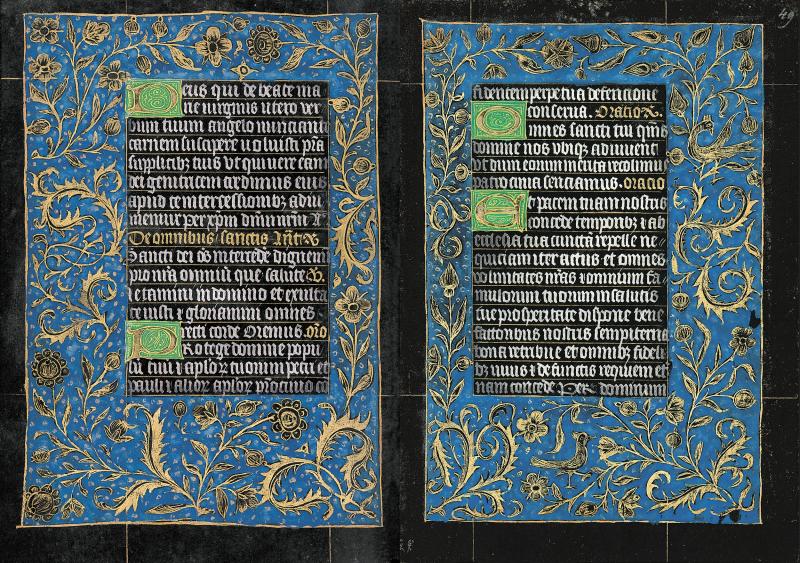 Deus qui de beate ma
rie virginis utero ver
bum tuum angelo nunciante
carnem suscipere voluisti pr̄a
supplicibꝫ tuis vt qui vere eam
dei genitricem credimus eius
apud te intercessionibꝫ adiu
uemur per xp̄m dn̄m nr̄m
De omnibus sanctis
Sancti dei oēs intercede dignemi
pro nr̄a omniū que salute
letamini in domino et exulta
te iusti et gloriamini omnes
recti corde Oremus. oro
Protege domine popu
lū tuū et aplōꝝ tuorum petri et
pauli et alioꝝ aplōꝝ procinio cō
49
fidentem perpetua defencione
conserua. Oratio.
Omnes sancti tui qm̄s
domine nos vbiqꝫ adiuuent
vt dum eorum merita recolimus
patrocinia senciamus. oracio
Et pacem tuam nostris
concede temporibꝫ et ab
ecclesia tua cunctā repelle ne
quiciam iter actus et omnes
voluntates nr̄as et omnium fa
mulorum tuorum in salutis
tue prosperitate dispone bene
factoribus nostris sempiterna
bona retribue et omnibꝫ fideli
bꝫ viuis et defunctis requiem et
nam concede Per dominum